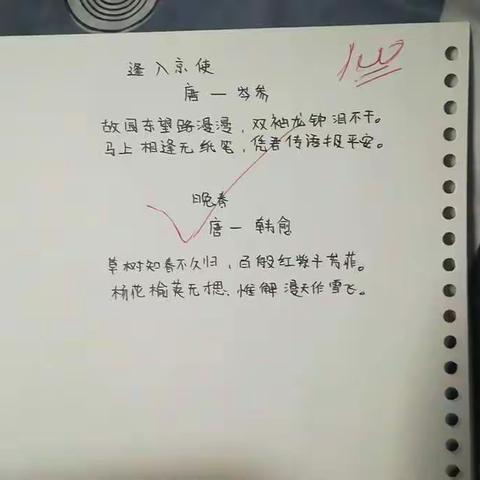 逢入京使
100
唐一岑参
故园东望路漫漫，双袖龙钟泪不干。
马上相逢无纸笔，凭君传语报平安。
晚春
唐一韩愈
草树知春不久归，百般红紫斗芳菲。
杨花榆荚无思、惟解漫天作雪飞。